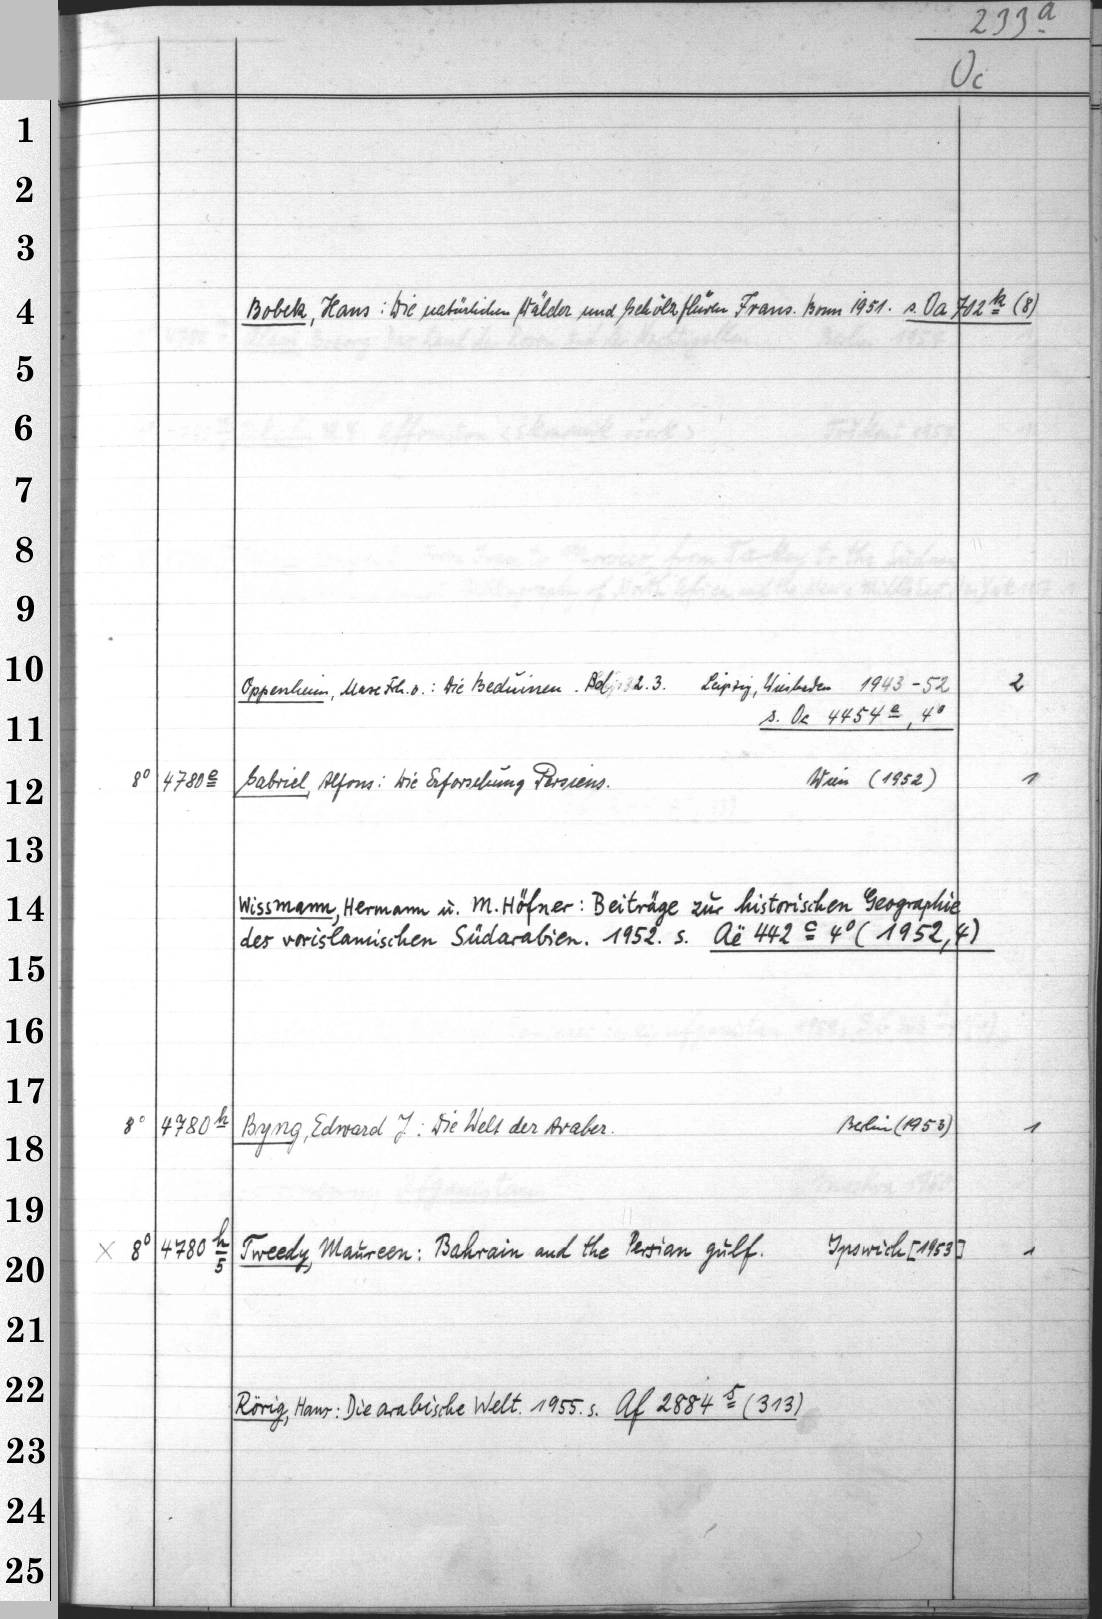 233 a
Oc
1
2
3
4 Bobek, Hans: Die natürlichen Wälder und Gehölzfluren Irans. Bonn 1951. s. Oa 712 k (8)
5
6
7
8
9
10 Oppenheim, Max Frh. v.: Die Beduinen. Bd 2.3. Leipzig, Wiesbaden 1943-52 2
11 s. Oc 4454 a, 4°
12 8° 4780 e Gabriel, Alfons: Die Erforschung Persiens. Wien (1952) 1
13
14 Wissmann, Hermann u. M. Höfner: Beiträge zur historischen Geographie
des vorislamischen Südarabien. 1952. s. Aë 442 c 4° (1952,4)
15
16
17
18 8° 4780 h Byng, Edward J.: Die Welt der Araber. Berlin (1953) 1
19
20 × 8° 4780 h/5 Tweedy, Maureen: Bahrain and the Persian gulf. Ipswich [1953] 1
21
22 Rörig, Hans: Die arabische Welt. 1955. s. Af 2884 5 (313)
23
24
25